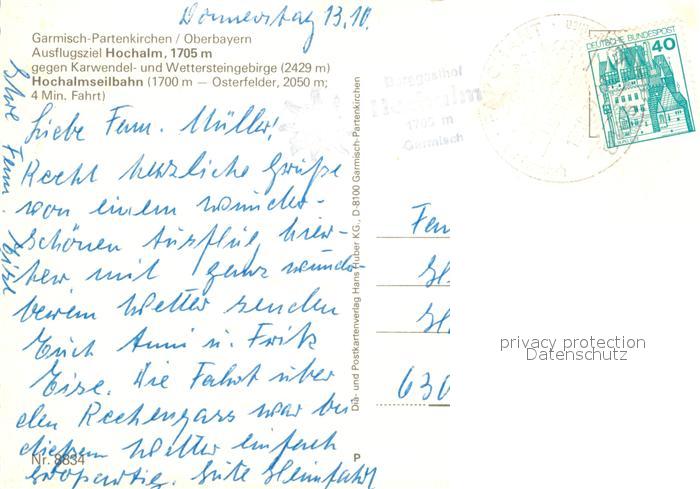 Donnerstag 13.10.
Garmisch-Partenkirchen / Oberbayern
Ausflugsziel Hochalm, 1705 m
gegen Karwendel- und Wettersteingebirge (2429 m)
Hochalmseilbahn (1700 m — Osterfelder, 2050 m;
4 Min. Fahrt)
Liebe Fam. Müller!
Recht herzliche Grüße
von einem wunder-
schönen Ausflug hier-
her mit ganz wunder-
barem Wetter senden
Euch Anni u. Fritz
Die Fahrt über
den war bei
diesem Wetter einfach
großartig. Gute Heimfahrt
Nr. 8834
P
Eure Fam.
Dia- und Postkartenverlag Hans Huber KG., D-8100 Garmisch-Partenkirchen
Berggasthof
Hochalm
1705 m
Garmisch
DEUTSCHE BUNDESPOST
40
Fam
630
privacy protection
Datenschutz